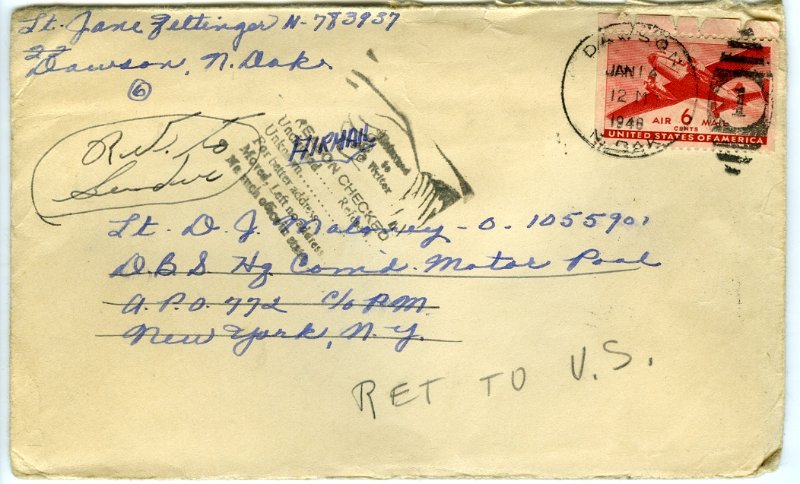 Lt. Jane Zettinger N-783937
Dawson, N. Dak.
6
Ret. to
Sender
AIRMAIL
Returned
to
Writer
REASON CHECKED
Unclaimed
Unknown
For better address
Moved, Left no address
No such office in state
DAWSON
JAN 14
12 M
1946
N. DAK.
1
AIR 6 MAIL
CENTS
UNITED STATES OF AMERICA
Lt. D. J. Maloney - O-1055901
O.B.S Hq Com'd. Motor Pool
A.P.O. 772 c/o P.M.
New York, N.Y.
RET TO U.S.